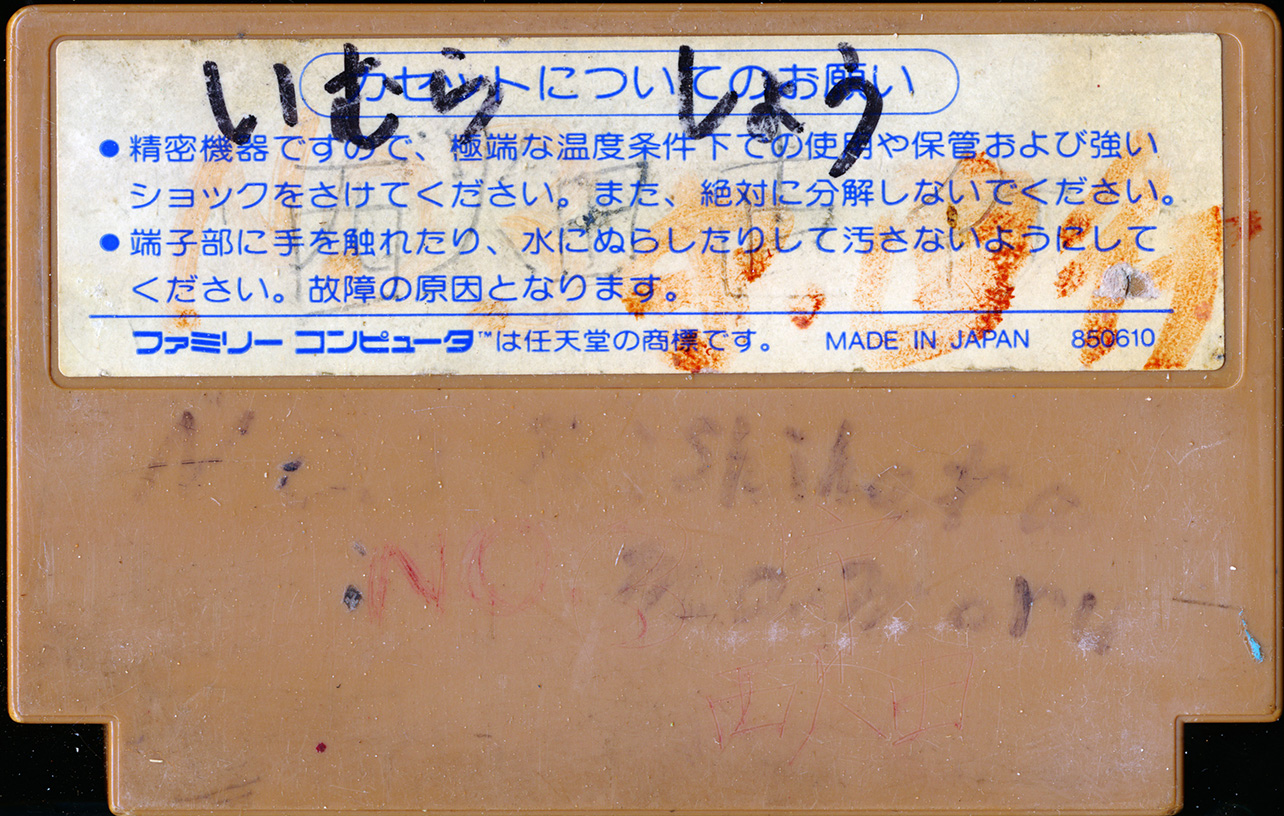 いむら しょう
カセットについてのお願い
●精密機器ですので、極端な温度条件下での使用や保管および強い
ショックをさけてください。また、絶対に分解しないでください。
●端子部に手を触れたり、水にぬらしたりして汚さないようにして
ください。故障の原因となります。
ファミリーコンピュータ™は任天堂の商標です。 MADE IN JAPAN 850610
NO.